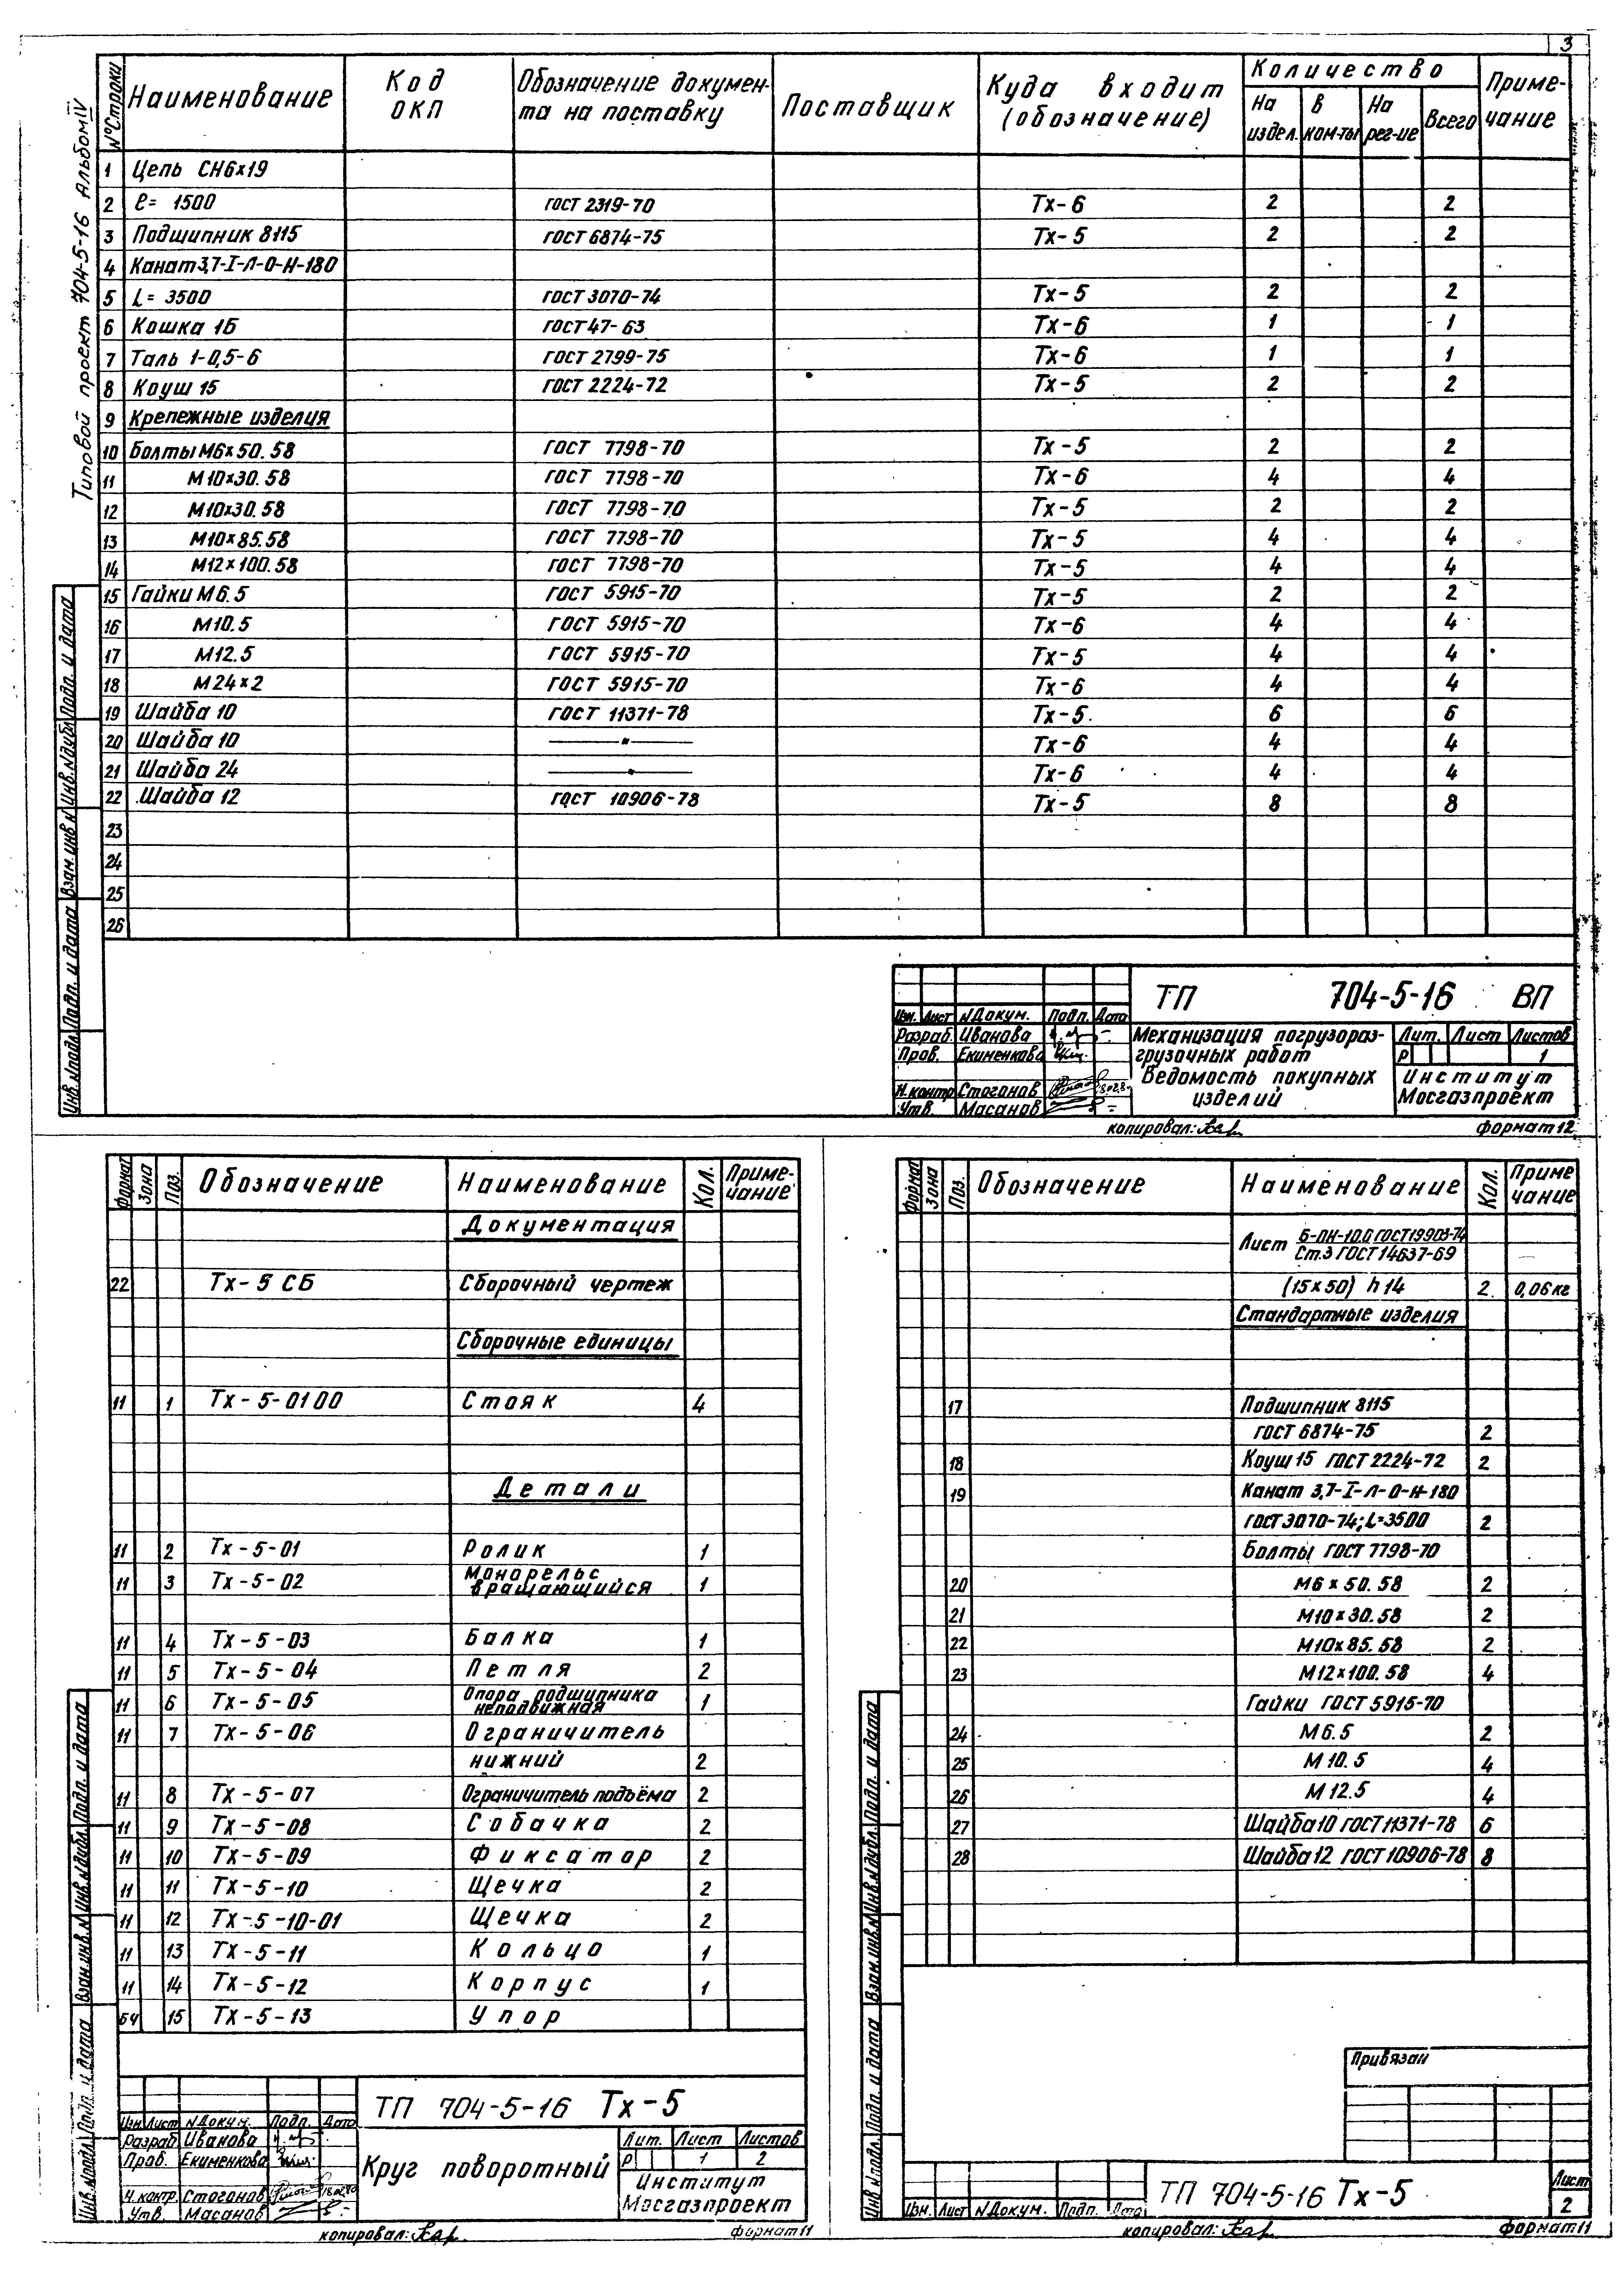 3
Типовой проект 704-5-16 Альбом IV
№ Строки Наименование Код ОКП Обозначение документа на поставку Поставщик Куда входит (обозначение) Количество Примечание
На издел. в ком-ты На рег-ие Всего
1 Цепь СН6х19
2 ℓ= 1500 ГОСТ 2319-70 Тх-6 2 2
3 Подшипник 8115 ГОСТ 6874-75 Тх-5 2 2
4 Канат 3,7-I-Л-О-Н-180
5 L= 3500 ГОСТ 3070-74 Тх-5 2 2
6 Кошка 1Б ГОСТ 47-63 Тх-6 1 1
7 Таль 1-0,5-6 ГОСТ 2799-75 Тх-6 1 1
8 Коуш 15 ГОСТ 2224-72 Тх-5 2 2
9 Крепежные изделия
10 Болты М6х50.58 ГОСТ 7798-70 Тх-5 2 2
11 М10х30.58 ГОСТ 7798-70 Тх-6 4 4
12 М10х30.58 ГОСТ 7798-70 Тх-5 2 2
13 М10х85.58 ГОСТ 7798-70 Тх-5 4 4
14 М12х100.58 ГОСТ 7798-70 Тх-5 4 4
15 Гайки М6.5 ГОСТ 5915-70 Тх-5 2 2
16 М10.5 ГОСТ 5915-70 Тх-6 4 4
17 М12.5 ГОСТ 5915-70 Тх-5 4 4
18 М24х2 ГОСТ 5915-70 Тх-6 4 4
19 Шайба 10 ГОСТ 11371-78 Тх-5 6 6
20 Шайба 10 —"— Тх-6 4 4
21 Шайба 24 —"— Тх-6 4 4
22 Шайба 12 ГОСТ 10906-78 Тх-5 8 8
23
24
25
26
Инв.№подл. Подп. и дата Взам.инв.№ Инв.№дубл. Подп. и дата
ТП 704-5-16 ВП
Изм. Лист №Докум. Подп. Дата
Разраб. Иванова
Пров. Екименкова
Н.контр. Стоганов
Утв. Масанов
Механизация погрузоразгрузочных работ
Ведомость покупных изделий
Лит. Лист Листов
Р 1
Институт
Мосгазпроект
копировал: формат 12
Формат Зона Поз. Обозначение Наименование Кол. Примечание
Документация
22 Тх-5 СБ Сборочный чертеж
Сборочные единицы
11 1 Тх-5-0100 Стояк 4
Детали
11 2 Тх-5-01 Ролик 1
11 3 Тх-5-02 Монорельс вращающийся 1
11 4 Тх-5-03 Балка 1
11 5 Тх-5-04 Петля 2
11 6 Тх-5-05 Опора подшипника неподвижная 1
11 7 Тх-5-06 Ограничитель
нижний 2
11 8 Тх-5-07 Ограничитель подъёма 2
11 9 Тх-5-08 Собачка 2
11 10 Тх-5-09 Фиксатор 2
11 11 Тх-5-10 Щечка 2
11 12 Тх-5-10-01 Щечка 2
11 13 Тх-5-11 Кольцо 1
11 14 Тх-5-12 Корпус 1
БЧ 15 Тх-5-13 Упор
Инв.№подл. Подп. и дата Взам.инв.№ Инв.№дубл. Подп. и дата
ТП 704-5-16 Тх-5
Изм. Лист №Докум. Подп. Дата
Разраб. Иванова
Пров. Екименкова
Н.контр. Стоганов
Утв. Масанов
Круг поворотный
Лит. Лист Листов
Р 1 2
Институт
Мосгазпроект
копировал: формат 11
Формат Зона Поз. Обозначение Наименование Кол. Примечание
Лист Б-ПН-10.0 ГОСТ 19903-74
Ст.3 ГОСТ 14637-69
(15х50) h14 2 0,06кг
Стандартные изделия
17 Подшипник 8115
ГОСТ 6874-75 2
18 Коуш 15 ГОСТ 2224-72 2
19 Канат 3,7-I-Л-О-Н-180
ГОСТ 3070-74; L=3500 2
Болты ГОСТ 7798-70
20 М6х50.58 2
21 М10х30.58 2
22 М10х85.58 2
23 М12х100.58 4
Гайки ГОСТ 5915-70
24 М6.5 2
25 М10.5 4
26 М12.5 4
27 Шайба 10 ГОСТ 11371-78 6
28 Шайба 12 ГОСТ 10906-78 8
Инв.№подл. Подп. и дата Взам.инв.№ Инв.№дубл. Подп. и дата
Привязан
Изм. Лист №Докум. Подп. Дата
ТП 704-5-16 Тх-5
Лист
2
копировал: формат 11